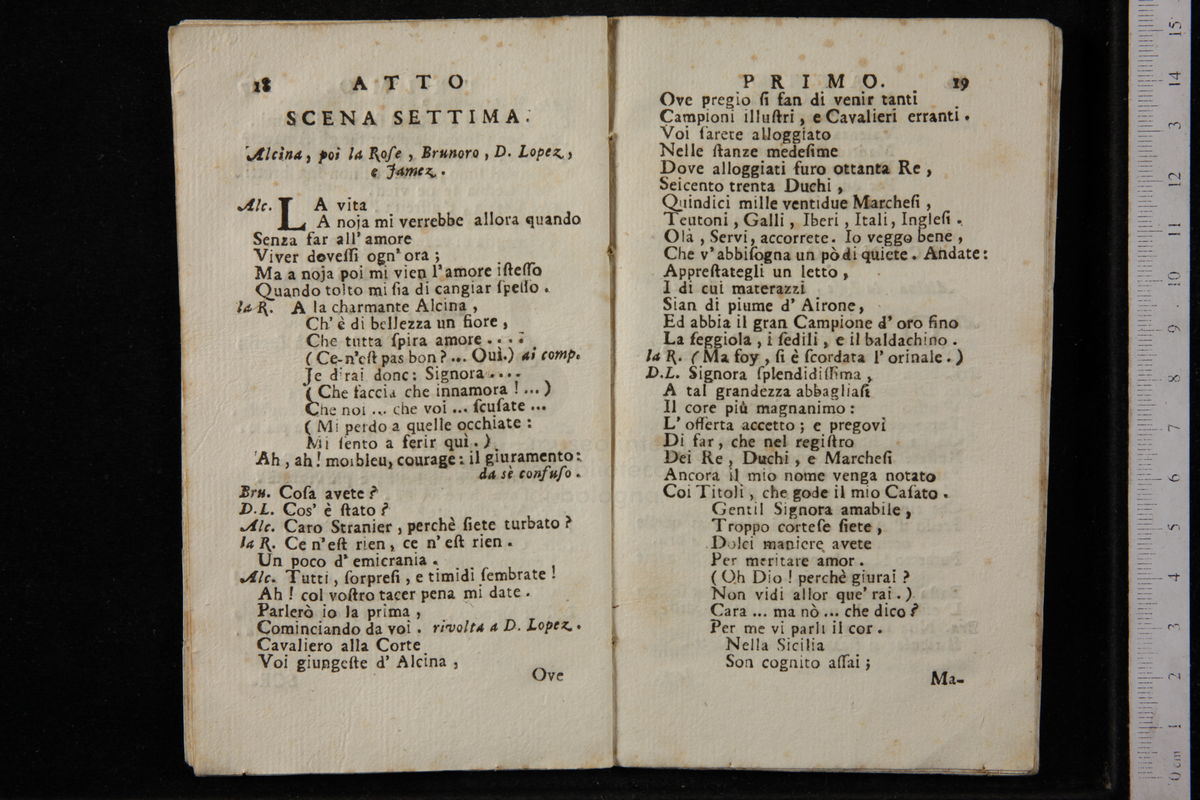 18 ATTO
SCENA SETTIMA.
Alcina, poi la Rose, Brunoro, D. Lopez,
e Jamez.
Alc. LA vita
A noja mi verrebbe allora quando
Senza far all' amore
Viver dovessi ogn' ora;
Ma a noja poi mi vien l'amore istesso
Quando tolto mi sia di cangiar spesso.
la R. A la charmante Alcina,
Ch' è di bellezza un fiore,
Che tutta spira amore....
(Ce-n'est pas bon?... Ouì.) ai comp.
Je dirai donc: Signora....
(Che faccia che innamora!...)
Che noi... che voi... scusate...
(Mi perdo a quelle occhiate:
Mi sento a ferir quì.)
Ah, ah! morbleu, courage: il giuramento:
da sè confuso.
Bru. Cosa avete?
D.L. Cos' è stato?
Alc. Caro Stranier, perchè siete turbato?
la R. Ce n'est rien, ce n' est rien.
Un poco d' emicrania.
Alc. Tutti, sorpresi, e timidi sembrate!
Ah! col vostro tacer pena mi date.
Parlerò io la prima,
Cominciando da voi. rivolta a D. Lopez.
Cavaliero alla Corte
Voi giungeste d' Alcina,
Ove
PRIMO. 19
Ove pregio si fan di venir tanti
Campioni illustri, e Cavalieri erranti.
Voi sarete alloggiato
Nelle stanze medesime
Dove alloggiati furo ottanta Re,
Seicento trenta Duchi,
Quindici mille ventidue Marchesi,
Teutoni, Galli, Iberi, Itali, Inglesi.
Olà, Servi, accorrete. Io veggo bene,
Che v' abbisogna un pò di quiete. Andate:
Apprestategli un letto,
I di cui materazzi
Sian di piume d' Airone,
Ed abbia il gran Campione d' oro fino
La seggiola, i sedili, e il baldachino.
la R. (Ma foy, si è scordata l' orinale.)
D.L. Signora splendidissima,
A tal grandezza abbagliasi
Il core più magnanimo:
L' offerta accetto; e pregovi
Di far, che nel registro
Dei Re, Duchi, e Marchesi
Ancora il mio nome venga notato
Coi Titoli, che gode il mio Casato.
Gentil Signora amabile,
Troppo cortese siete,
Dolci maniere avete
Per meritare amor.
(Oh Dio! perchè giurai?
Non vidi allor que' rai.)
Cara... ma nò... che dico?
Per me vi parli il cor.
Nella Sicilia
Son cognito assai;
Ma-